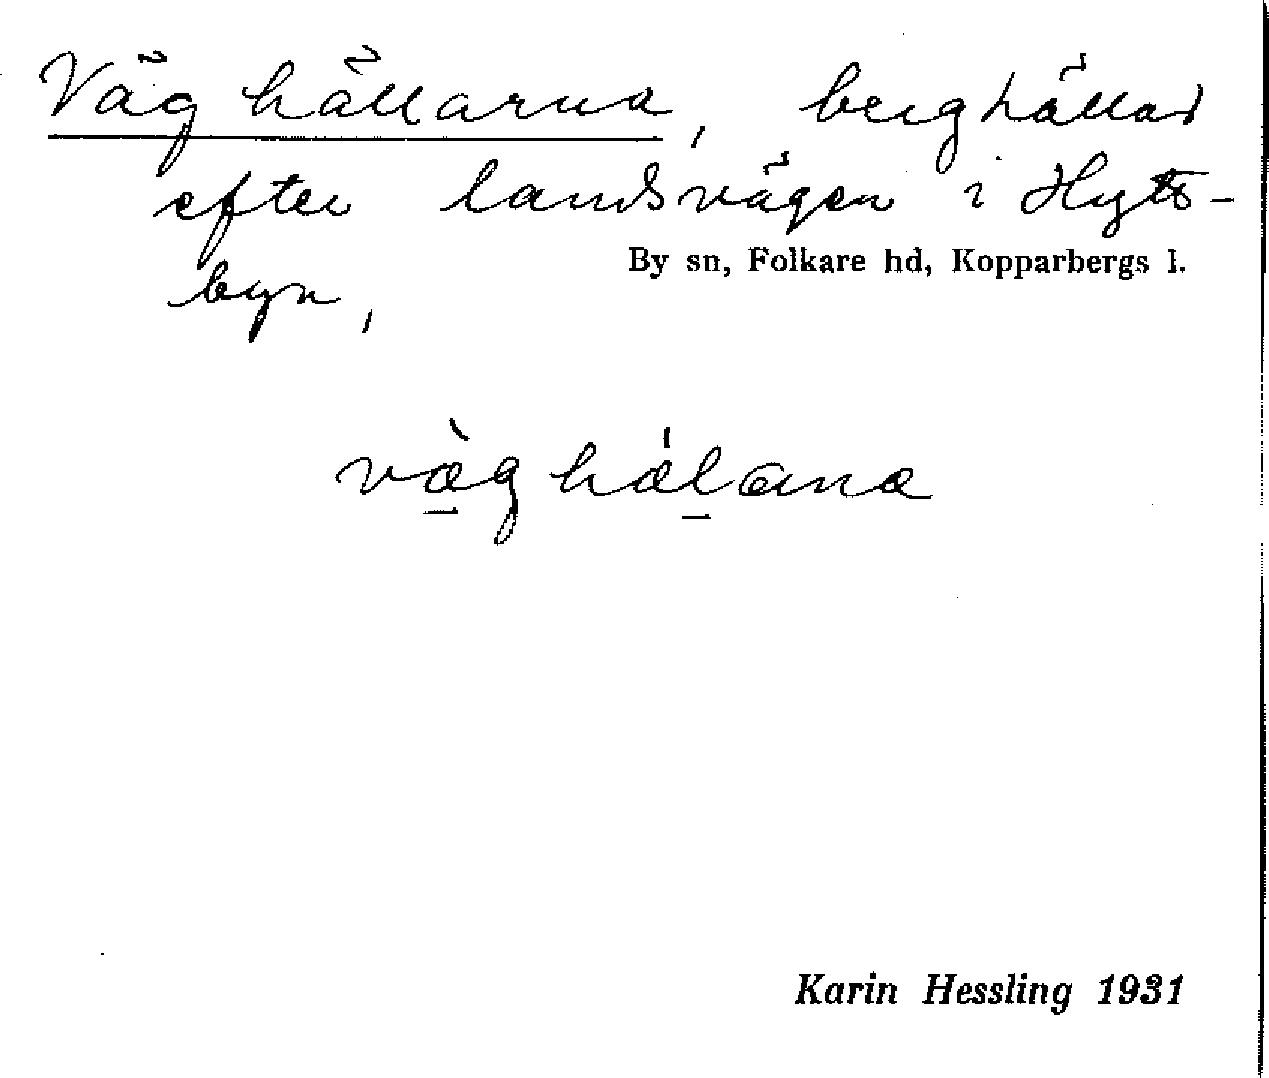 Väghällarna, berghällar
efter landsvägen i Hytts-
By sn, Folkare hd, Kopparbergs l.
byn,
væ̀g hæ̍lana
Karin Hessling 1931